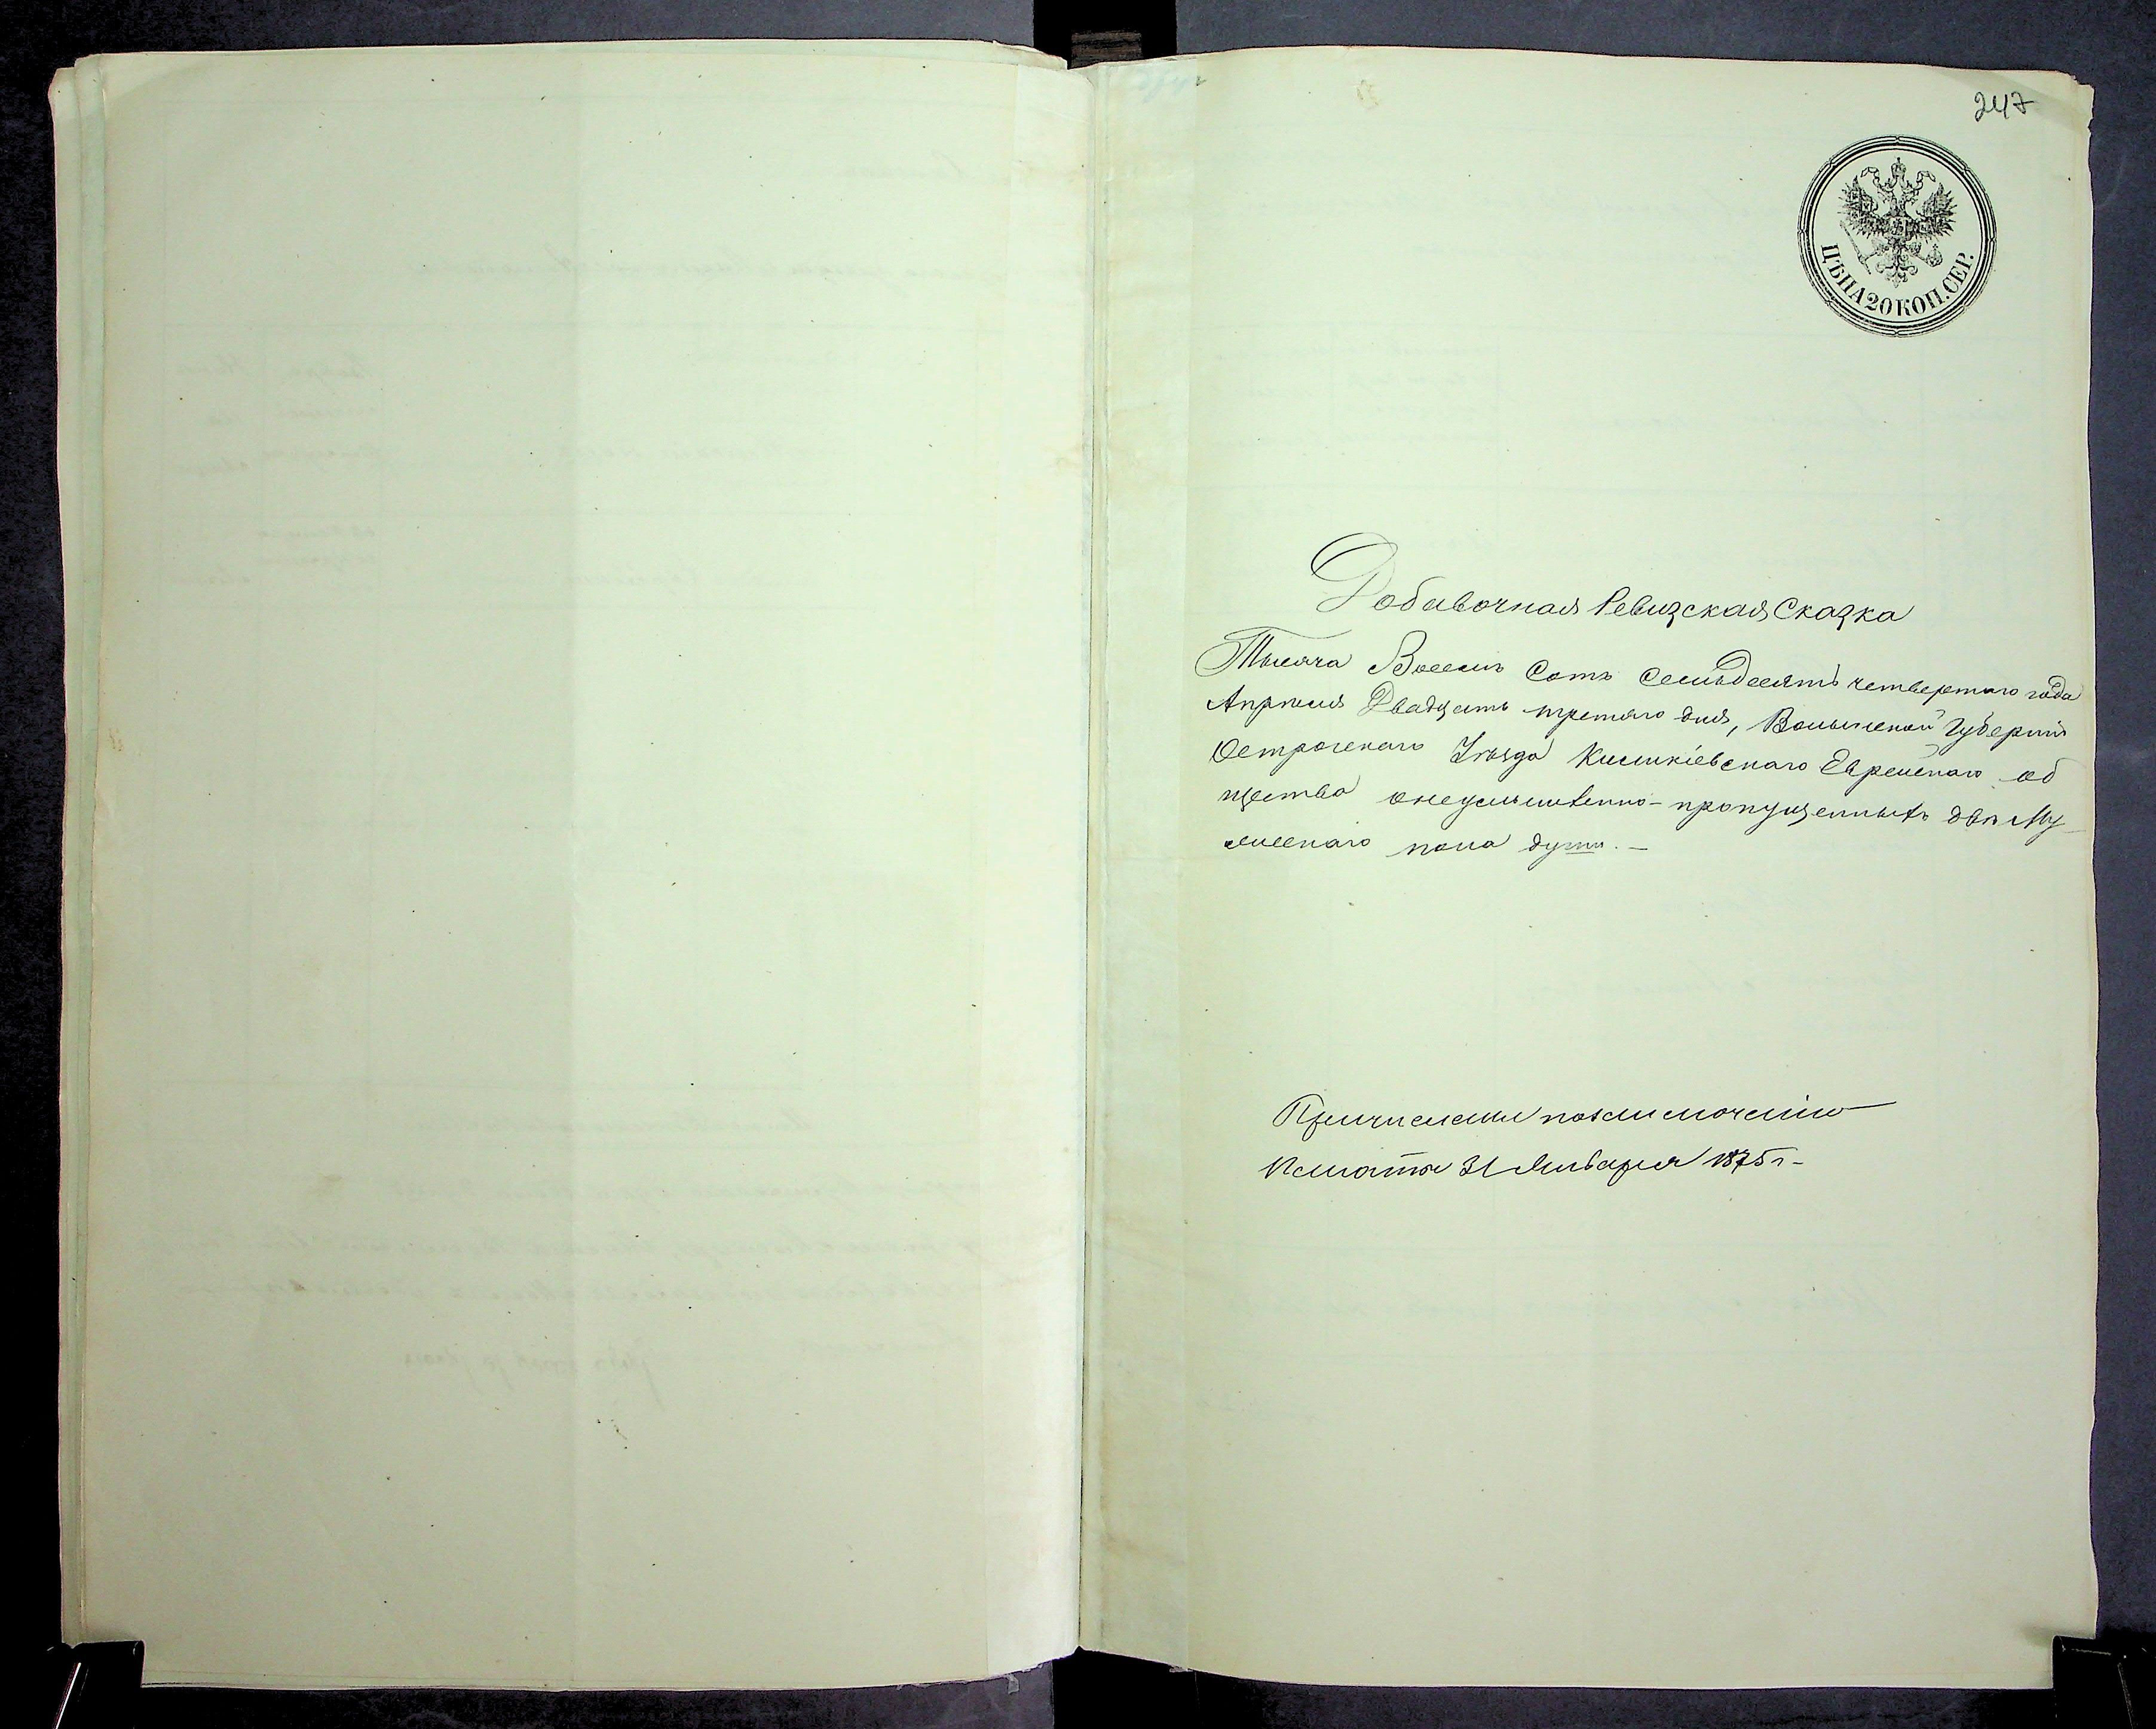 247
ЦѢНА 20 КОП. СЕР.
Добавочная Ревизская Сказка
Тысяча Восемь Сотъ Семьдесятъ четвертаго года
Апрѣля Двадцать третяго дня, Волынской Губерніи
Острогскаго Уѣзда Киликіевскаго Еврейскаго об
щества о неумышленно-пропущенныхъ двѣ Му
жескаго пола души. —
Причислены по
Палаты 31 Января 1875 г. —